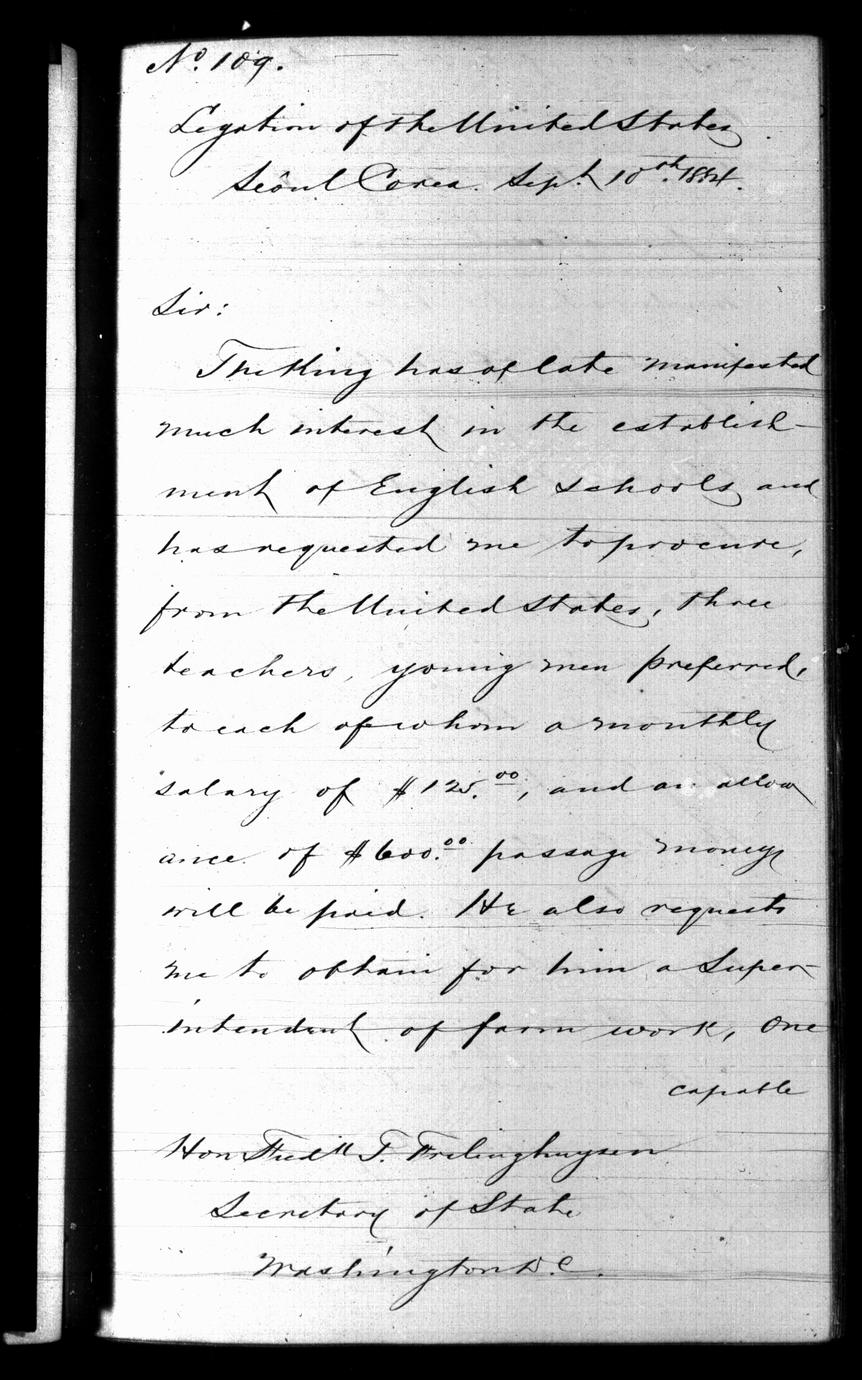 No. 109.
Legation of the United States
Seôul Corea. Sept. 10th. 1884.
Sir:
The King has of late manifested
much interest in the establish-
ment of English schools, and
has requested me to procure,
from the United States, three
teachers, young men preferred,
to each of whom a monthly
salary of $125.00, and an allow
ance of $600.00 passage money
will be paid. He also requests
me to obtain for him a Super-
intendent of farm work, one
capable
Hon Fredk T. Frelinghuysen
Secretary of State
Washington D.C.